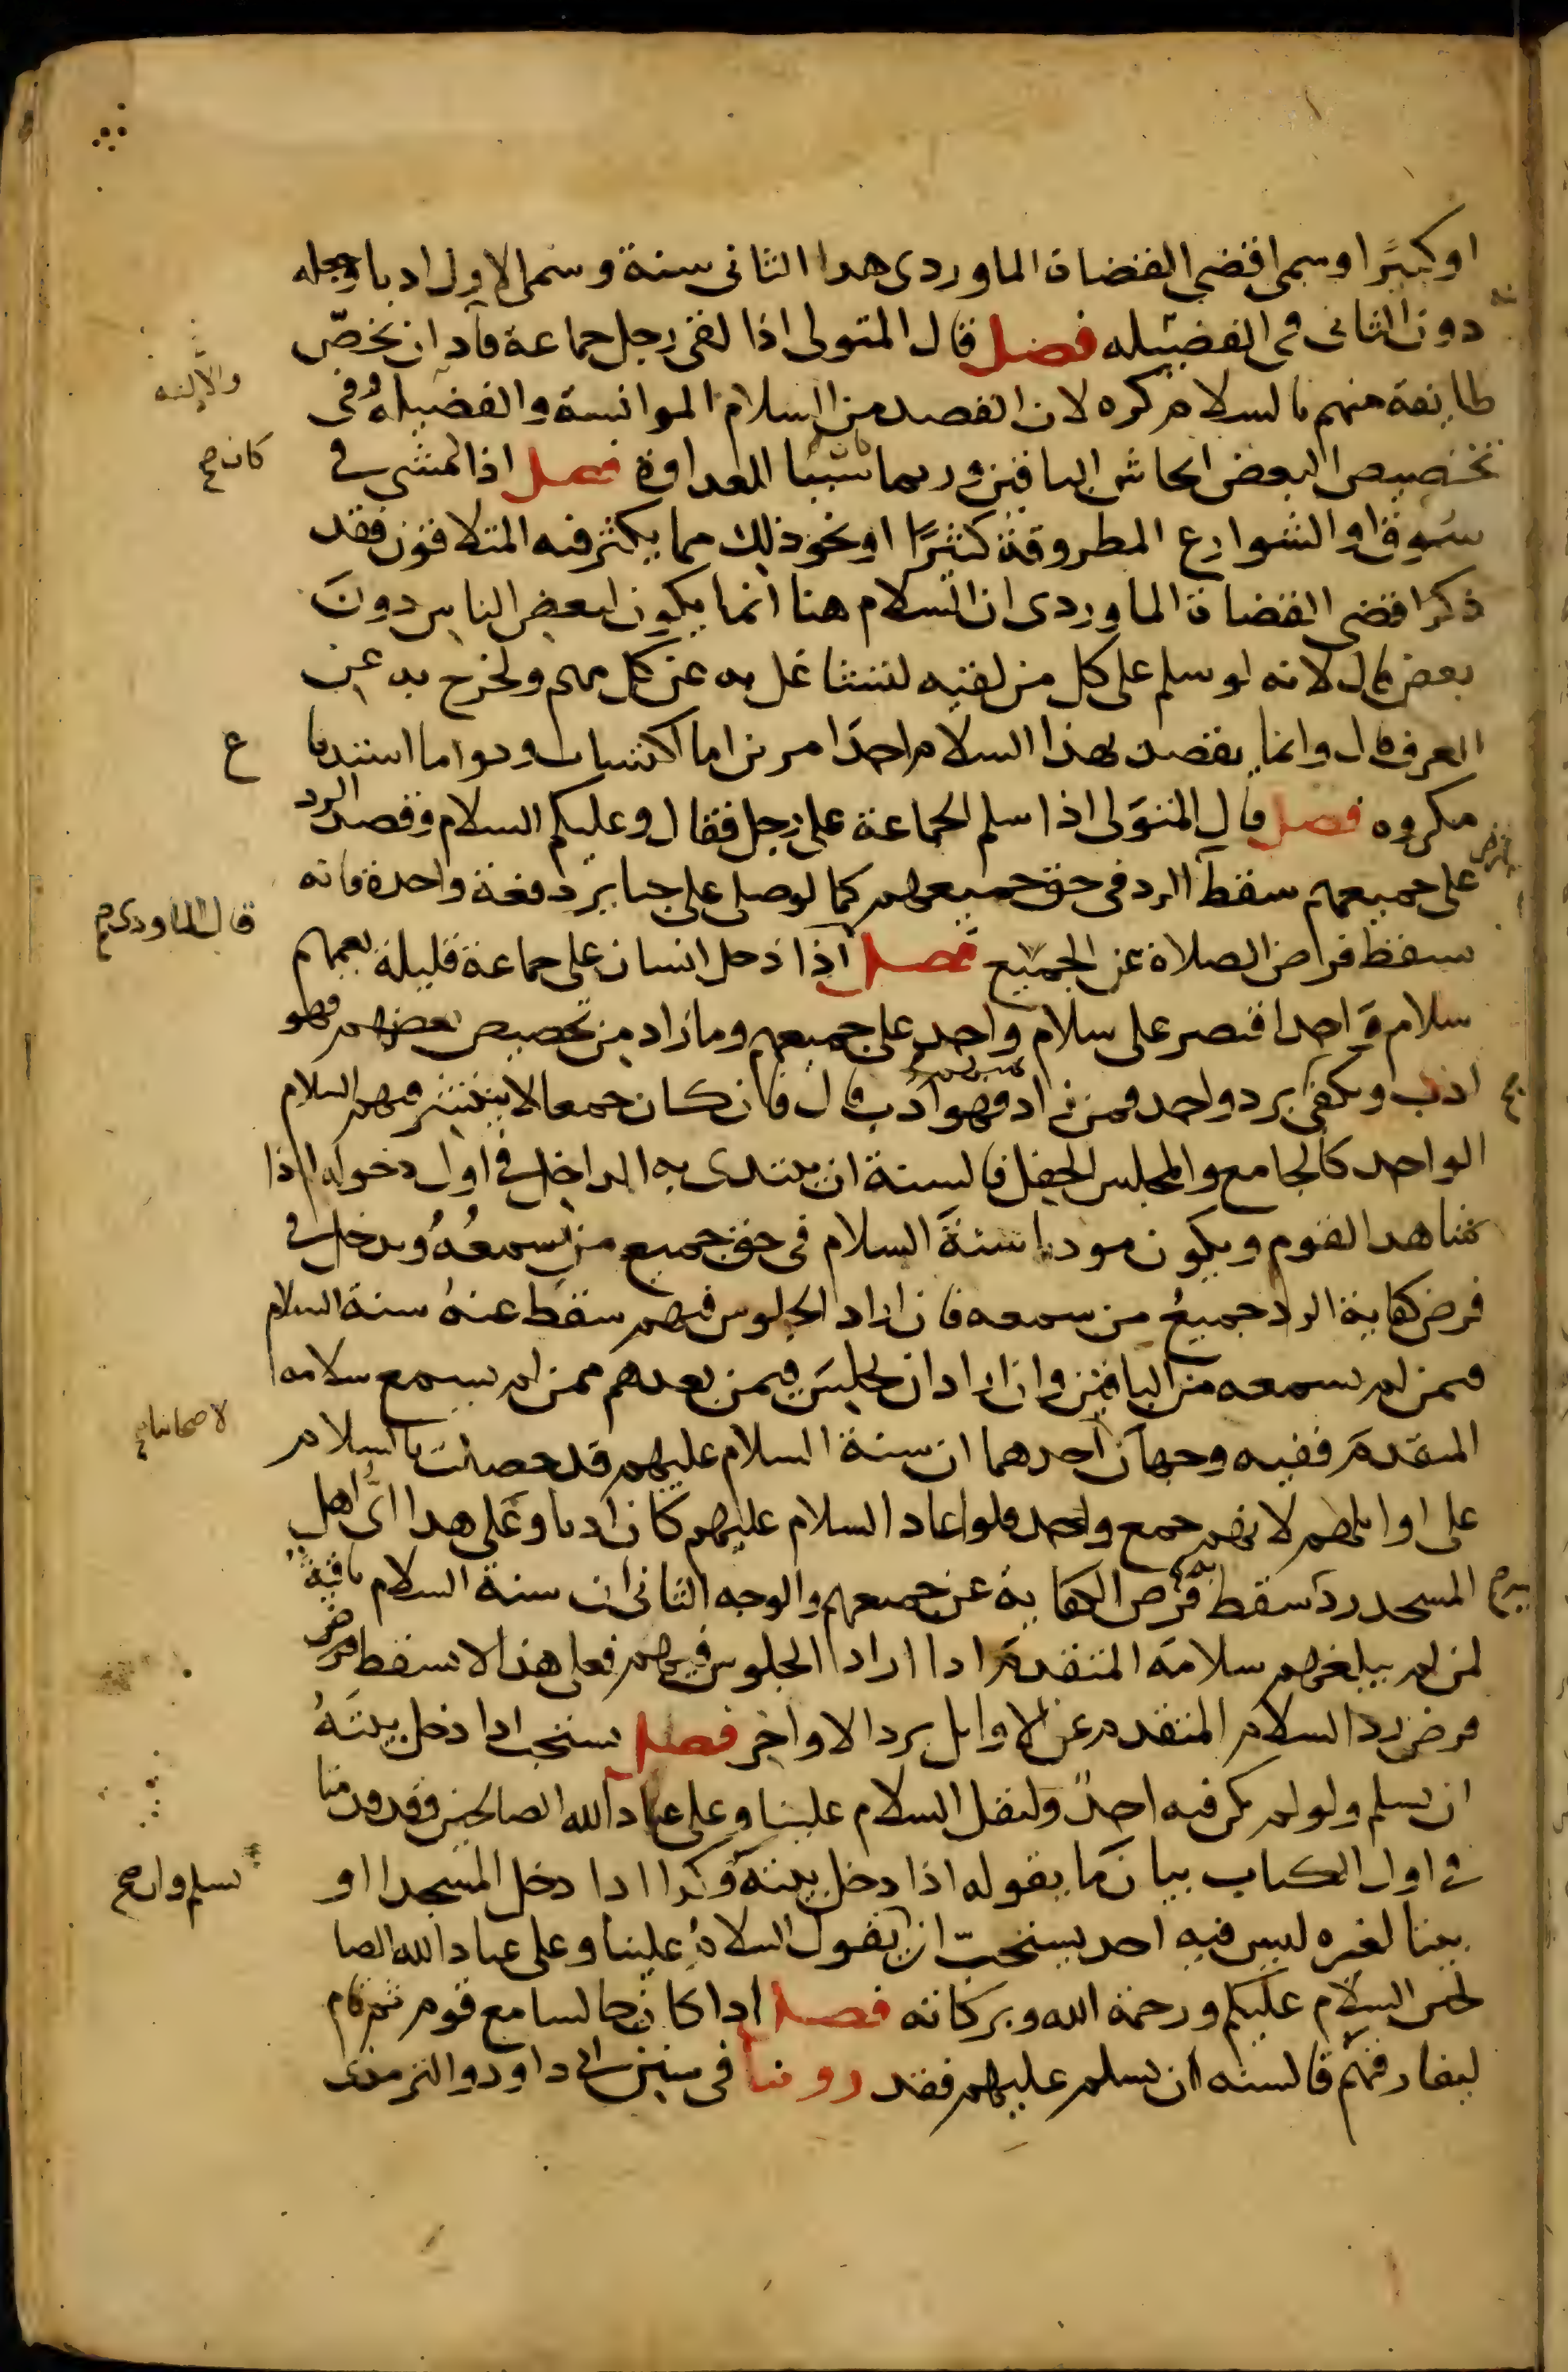 او كبيرًا وسمى اقضى القضاة الماوردى هدا الثانى سنة وسمى الاول ادبا وجعله
دون الثانى فى الفضيله فصل قال المتولى اذا لقى رجل جماعة فآد ان يخصّ
طايفة منهم بالسلام كره لان القصد من السلام الموانسة والفضيله وفى
تخصيص البعض ايحاش الباقين وربما سببا للعداوة فصل اذا المشى فى
سوق او الشوارع المطروقة كثيرًا او نحو ذلك مما يكثر فيه المتلاقون فقد
ذكر اقضى القضاة الماوردى ان السلام هنا انما يكون لبعض الناس دونَ
بعض قال لانه لو سلم على كل من لقيه لتشاغل به عن كل مهم ولخرج به عن
العرف قال وانما يقصد بهذا السلام احدَ امرين اما اكتساب ود واما استدبا
مكروه فصل قال المتوَلى اذا سلم الجماعة على رجل فقال وعليكم السلام وقصد الرد
على جميعهم سقط الرد فى حق جميعهم كما لو صلى على جنايز دفعة واحدة فانه
سقط فرض الصلاة عن الجميع فصل اذا دخل انسان على جماعة قليلة يعمهم
سلام واحد اقتصر على سلام واحد على جميعهم وما زاد من تخصيص بعضهم فهو
ادب ويكفى يرد واحد فمن زاد فهو ادب قال فان كان جمعا لا ينتشر فيهم السلام
الواحد كالجامع والمجلس الحفل فالسنة ان يبتدى به الداخل فى اول دخوله اذا
شاهد القوم ويكون موديا سنةَ السلام فى حق جميع من يسمعُهُ ويدخل فى
فرض كفاية الرد جميعُ من سمعه فان اراد الجلوس فيهم سقط عنهُ سنة السلام
فيمن لم يسمعه من الباقين وان اراد ان يجلسَ فيمن بعدهم ممن لم يسمع سلامه
المتقدم ففيه وجهان احدهما ان سنة السلام عليهم قد حصلت بالسلام
على اوايلهم لانهم جمع واحد فلو اعاد السلام عليهم كان ادبا وعلى هدا اىُّ اهل
المسجد رد سقط به فرض الكفاية عن جميعهم والوجه الثانى ان سنة السلام باقية
لمن لم يبلغهم سلامه المتقدم ادا اراد الجلوس فيهم فعلى هذا لا يسقط فرض
فرض رد السلام المتقدم عن الاوايل برد الاواخر فصل يستحب ادا دخل بيتَهُ
ان يسلم ولو لم يكن فيه احدٌ وليقل السلام علينا وعلى عباد الله الصالحين وقد قدمنا
فى اول الكتاب بيان ما يقوله اذا دخل بيته وكدا ادا دخل المسجد او
بيتا لغيره ليس فيه احد يستحبّ ان يقول السلامُ علينا وعلى عباد الله الصا
لحين السلام عليكم ورحمة الله وبركاته فصل ادا كان جالسا مع قوم ثم قام
ليفارقهم فالسنه ان يسلم عليهم فقد روينا فى سنن ابى داود والترمذى
والالفه
كان صح
ع
قال الماوردى صح
لاصحابنا صح
يسلم وان صح